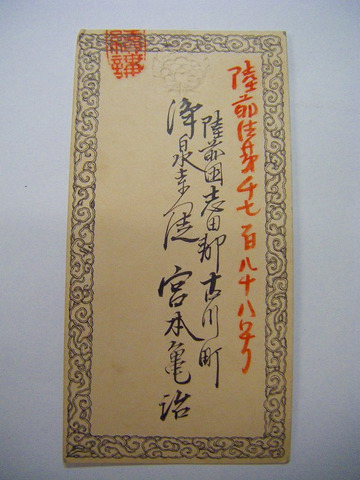 陸前佳第千七百八十八号
陸前国志田郡古川町
浄泉寺徒 宮本亀治